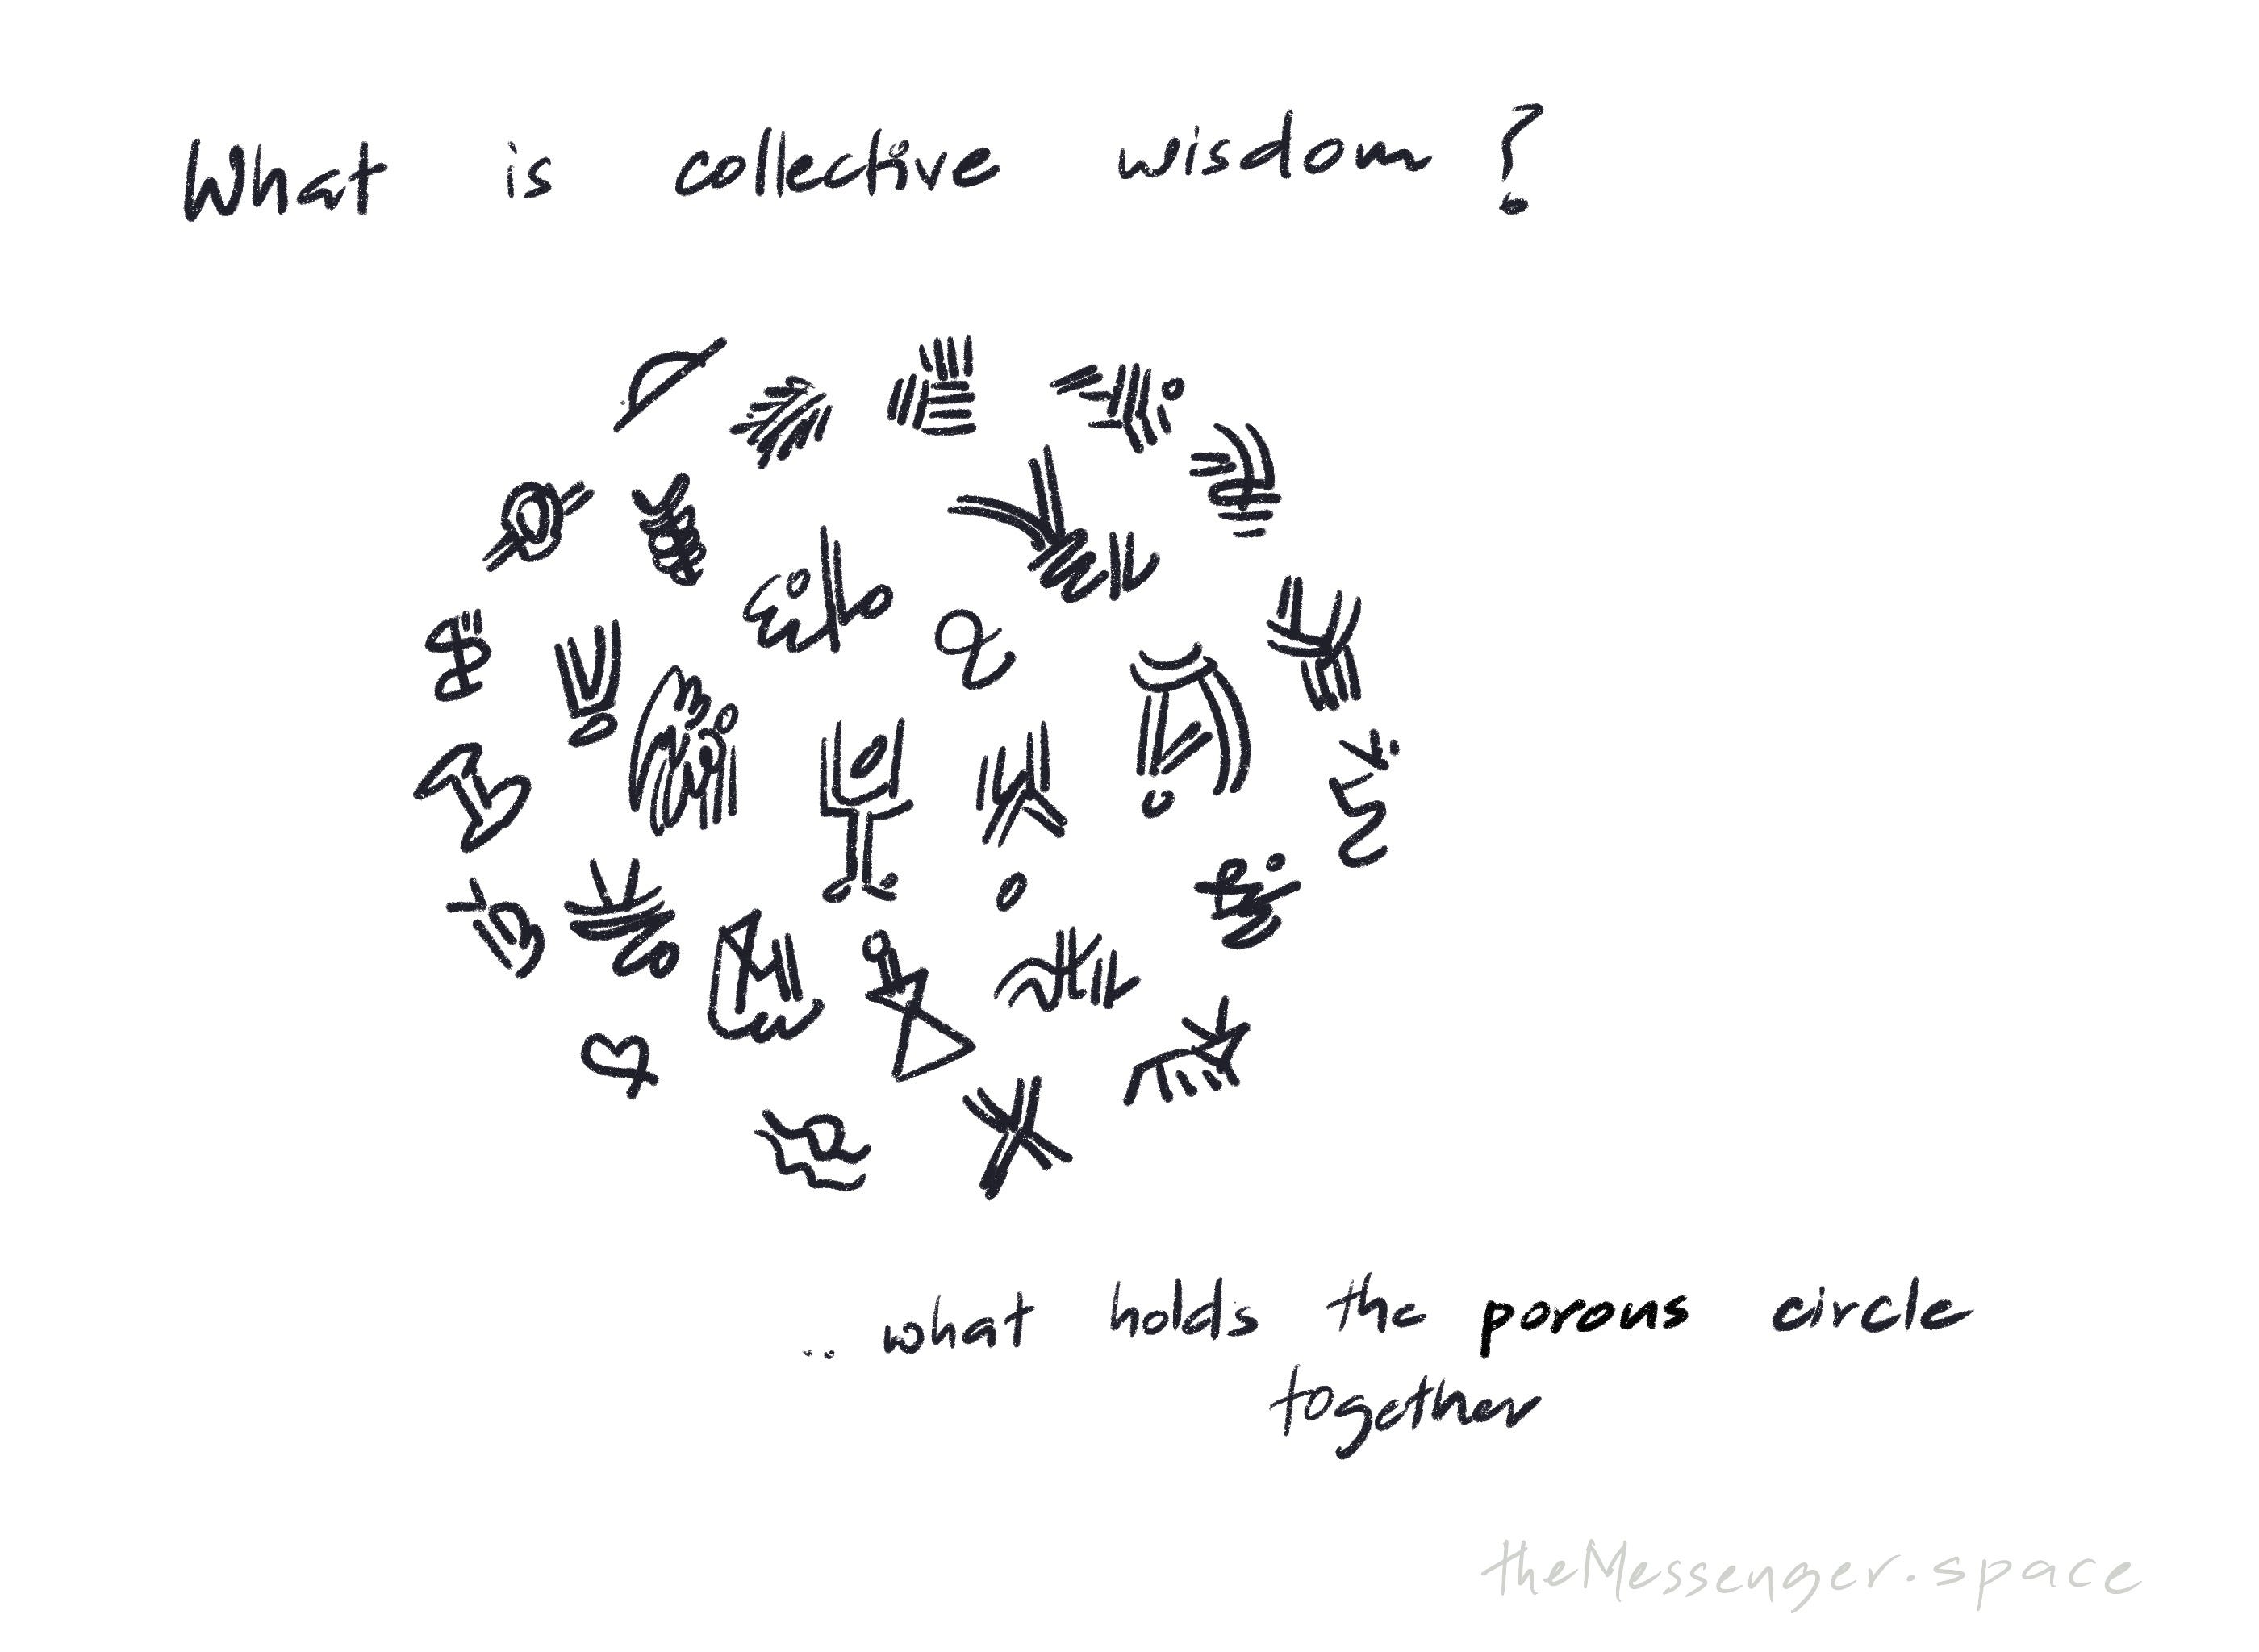 What is collective wisdom?
.. what holds the porous circle
together
theMessenger.space